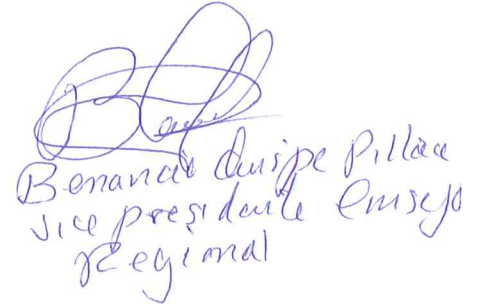 Benanci Quispe Pillaca
vice presidente Consejo
Regional